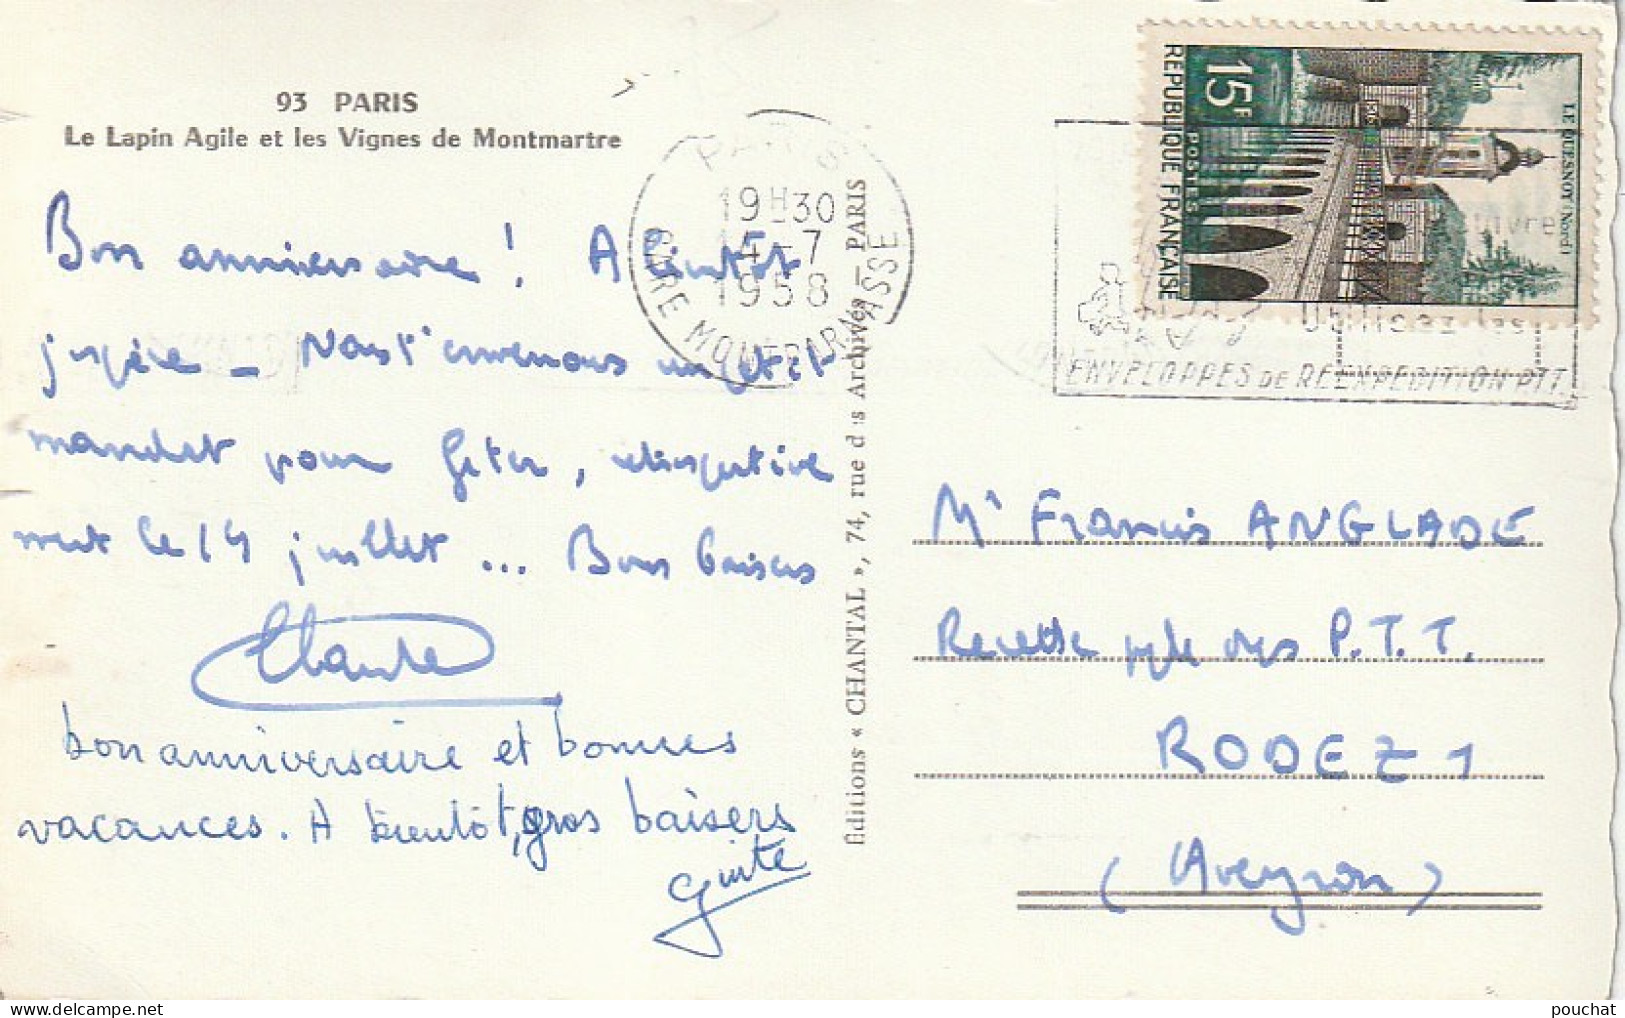 93 PARIS
Le Lapin Agile et les Vignes de Montmartre
Bon anniversaire ! A bientôt
j'espère - Nous t'envoyons un petit
mandat pour fêter, rétrospective
ment le 14 juillet ... Bons baisers
Claude
bon anniversaire et bonnes
vacances. A bientôt, gros baisers
Guite
Éditions « CHANTAL », 74, rue des Archives — PARIS
PARIS
19H30
14-7
1958
GARE MONTPARNASSE
RÉPUBLIQUE FRANÇAISE
15F
POSTES
LE QUESNOY Nord
suivre
Utilisez les
ENVELOPPES DE RÉEXPÉDITION PTT
Mr Francis ANGLADE
Recette ple des P.T.T.
RODEZ 1
(Aveyron)
pouchat